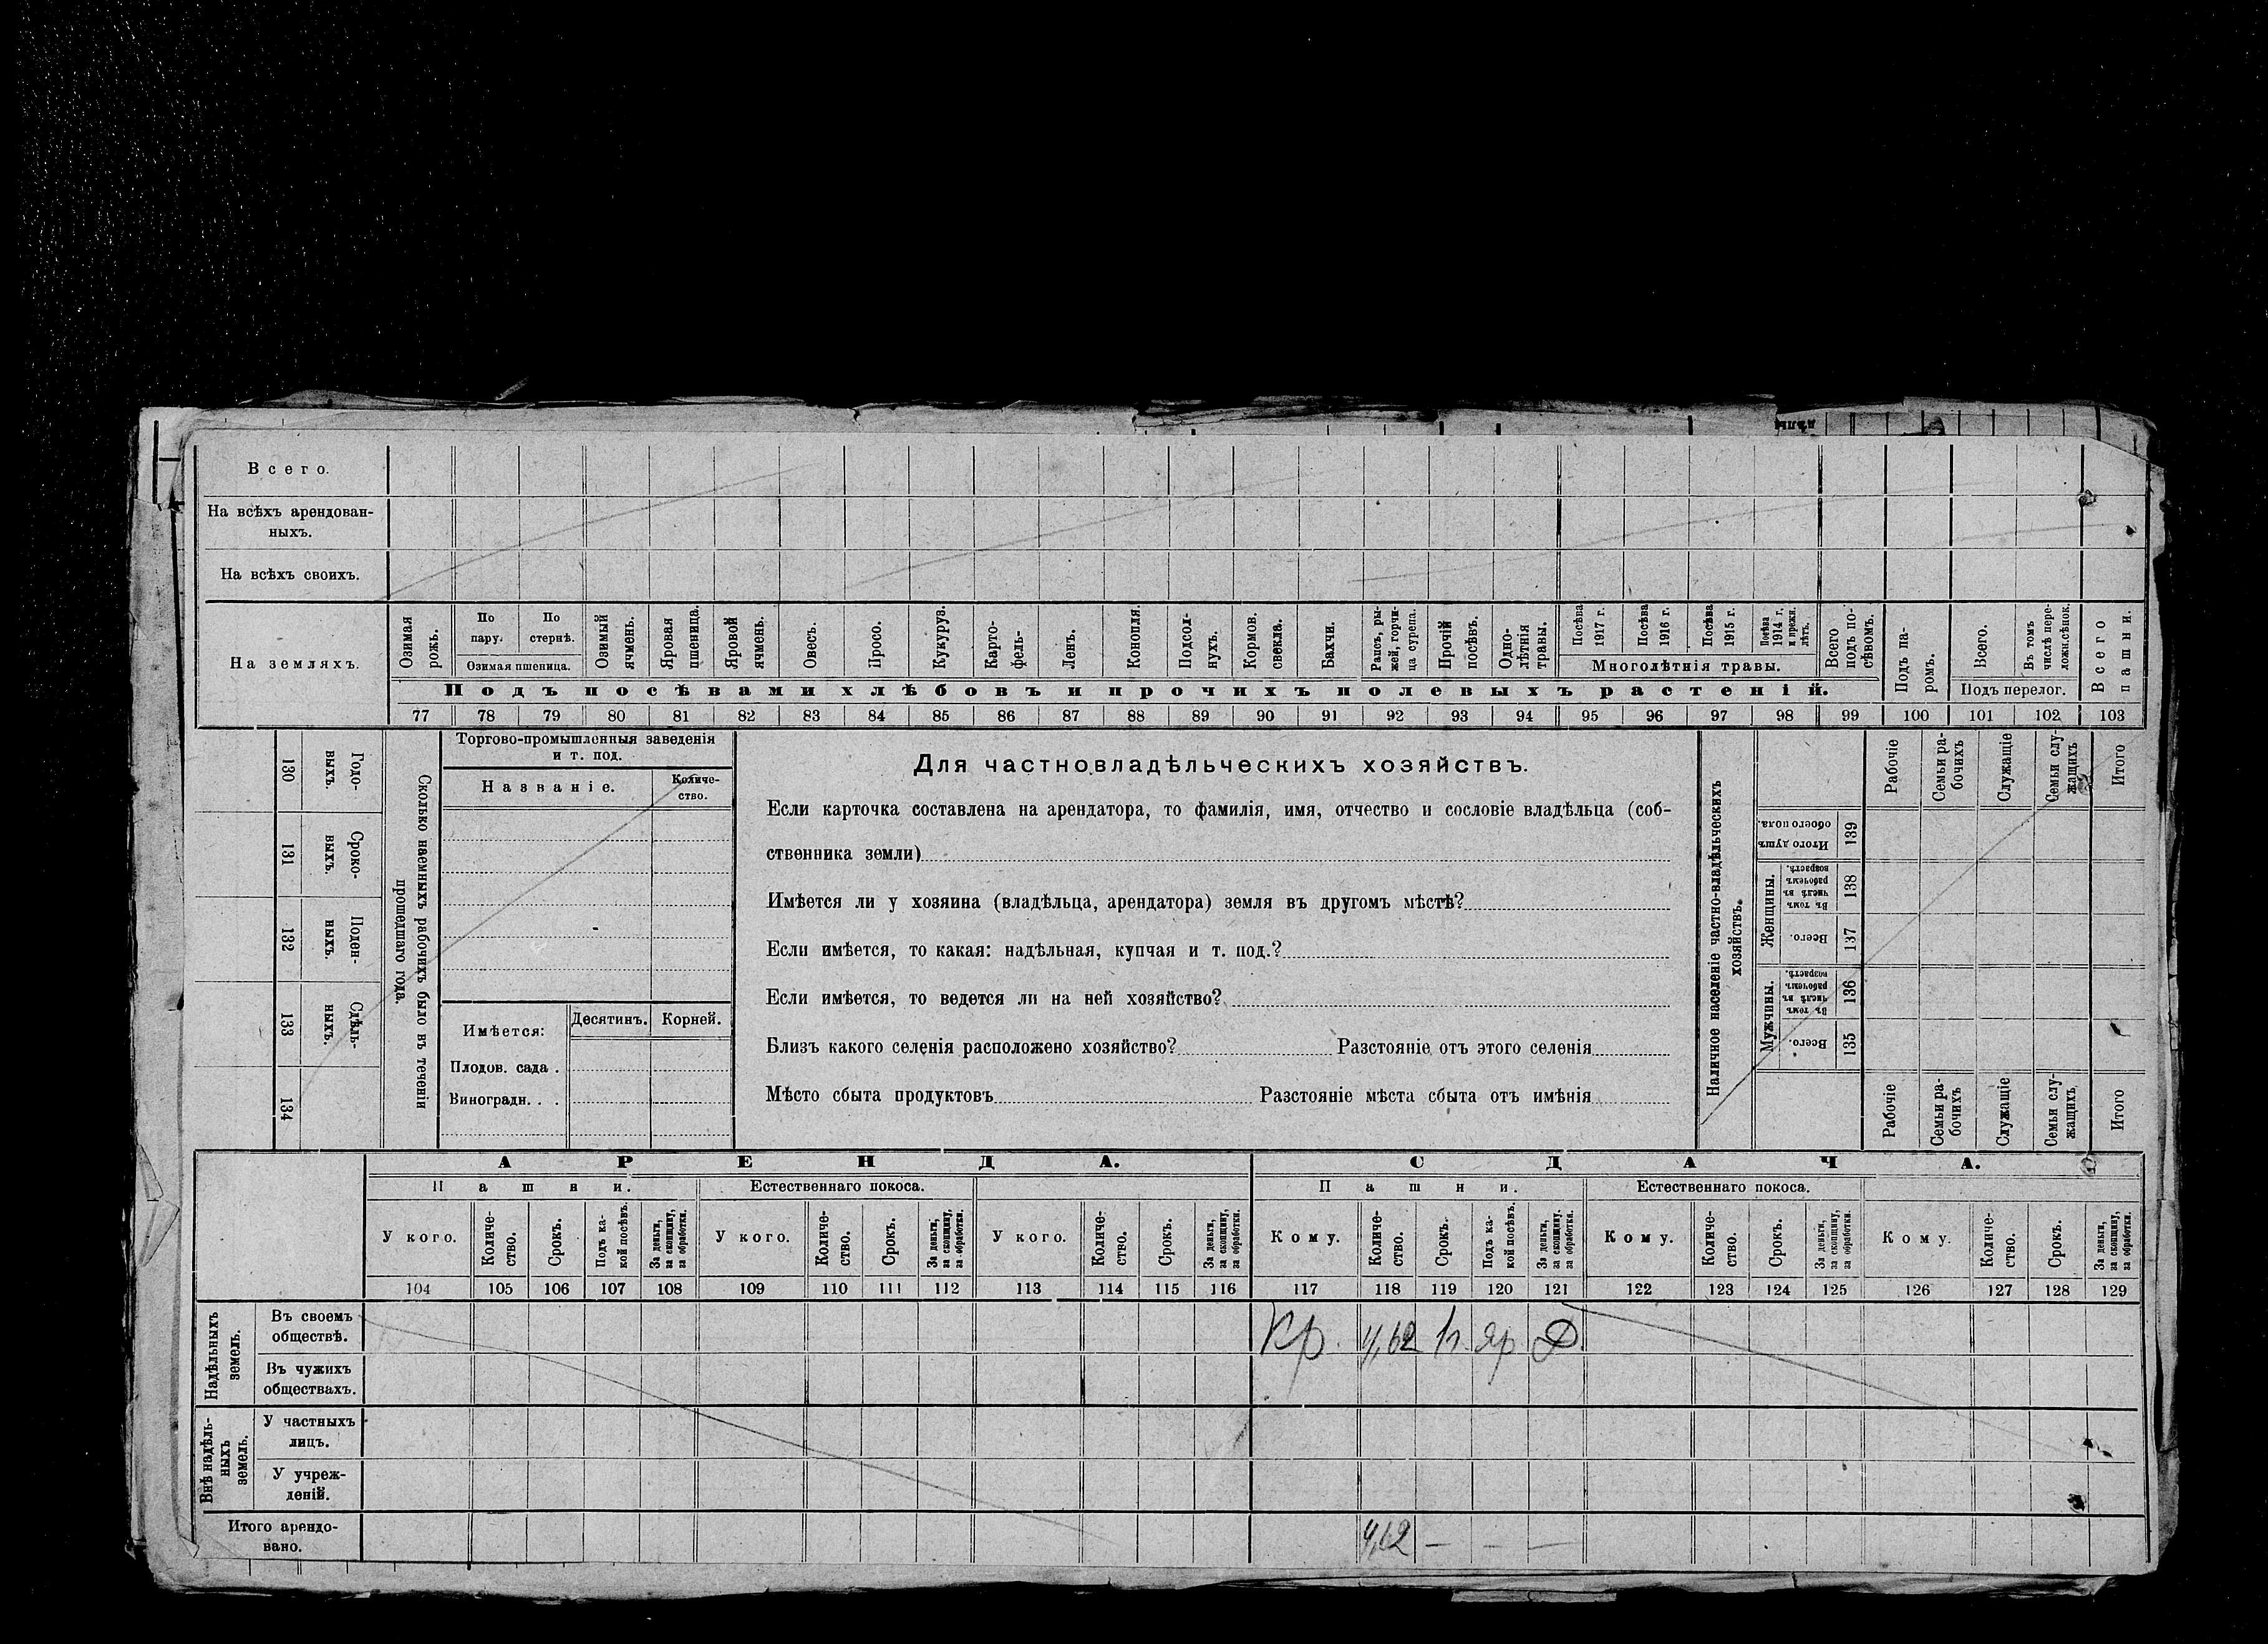 Всего.
На всѣхъ арендован-
ныхъ.
На всѣхъ своихъ.
На земляхъ.
Озимая рожь.
По пару.
По стернѣ.
Озимая пшеница.
Озимый ячмень.
Яровая пшеница.
Яровой ячмень.
Овесъ.
Просо.
Кукуруз.
Карто-
фель-
Ленъ.
Конопля.
Подсол-
нухъ.
Кормов.
свекла.
Бахчи.
Рапсъ, ры-
жей, горчи-
ца сурепа.
Прочій
посѣвъ.
Одно-
лѣтнія
травы.
Посѣва
1917 г.
Посѣва
1916 г.
Посѣва
1915 г.
Посѣва
1914 г.
и прежн.
лѣтъ.
Многолѣтнія травы.
Всего
подъ по-
сѣвомъ.
Подъ па-
ромъ.
Всего.
Въ томъ
числѣ пере-
ложн.сѣнок.
Подъ перелог.
Всего
пашни.
Подъ посѣвами хлѣбовъ и прочихъ полевыхъ растеній.
77 78 79 80 81 82 83 84 85 86 87 88 89 90 91 92 93 94 95 96 97 98 99 100 101 102 103
130
Годо-
выхъ.
131
Сроко-
выхъ.
132
Поден-
ныхъ.
133
Сдѣль-
ныхъ.
134
Сколько наемныхъ рабочихъ было въ теченіи
прошедшаго года.
Торгово-промышленныя заведенія
и т. под.
Названіе.
Количе-
ство.
Имѣется:
Десятинъ.
Корней.
Плодов. сада .
Виноградн. . .
Для частновладѣльческихъ хозяйствъ.
Если карточка составлена на арендатора, то фамилія, имя, отчество и сословіе владѣльца (соб-
ственника земли)
Имѣется ли у хозяина (владѣльца, арендатора) земля въ другомъ мѣстѣ?
Если имѣется, то какая: надѣльная, купчая и т. под.?
Если имѣется, то ведется ли на ней хозяйство?
Близъ какого селенія расположено хозяйство? Разстояніе отъ этого селенія
Мѣсто сбыта продуктовъ Разстояніе мѣста сбыта отъ имѣнія
Наличное населеніе частно-владѣльческихъ
хозяйствъ.
Рабочіе
Семьи ра-
бочихъ
Служащіе
Семьи слу-
жащихъ
Итого
Итого душъ
обоего пола.
139
Женщины.
Въ томъ
числѣ въ
рабочемъ
возрастѣ.
138
Всего.
137
Мужчины.
Въ томъ
числѣ въ
рабочемъ
возрастѣ.
136
Всего.
135
Рабочіе
Семьи ра-
бочихъ
Служащіе
Семьи слу-
жащихъ
Итого
АРЕНДА.
СДАЧА.
Пашни.
Естественнаго покоса.
Пашни.
Естественнаго покоса.
У кого.
Количе-
ство.
Срокъ.
Подъ ка-
кой посѣвъ.
За деньги,
за скопщину,
за обработки.
У кого.
Количе-
ство.
Срокъ.
За деньги,
за скопщину,
за обработки.
У кого.
Количе-
ство.
Срокъ.
За деньги,
за скопщину,
за обработки.
Кому.
Количе-
ство.
Срокъ.
Подъ ка-
кой посѣвъ.
За деньги,
за скопщину,
за обработки.
Кому.
Количе-
ство.
Срокъ.
За деньги,
за скопщину,
за обработки.
Кому.
Количе-
ство.
Срокъ.
За деньги,
за скопщину,
за обработки.
104 105 106 107 108 109 110 111 112 113 114 115 116 117 118 119 120 121 122 123 124 125 126 127 128 129
Надѣльныхъ
земель.
Въ своемъ
обществѣ.
Кр. 4,62 Яр. Д
Въ чужихъ
обществахъ.
Внѣ надѣль-
ныхъ
земель.
У частныхъ
лицъ.
У учреж-
деній.
Итого арендо-
вано.
4,62 — — —